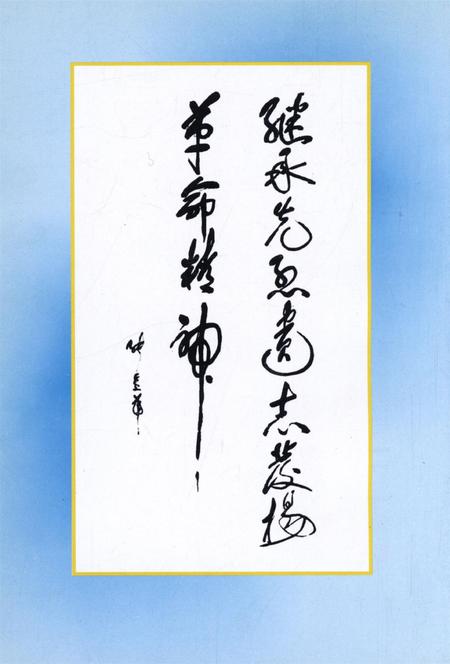 继承先烈遗志发扬
革命精神